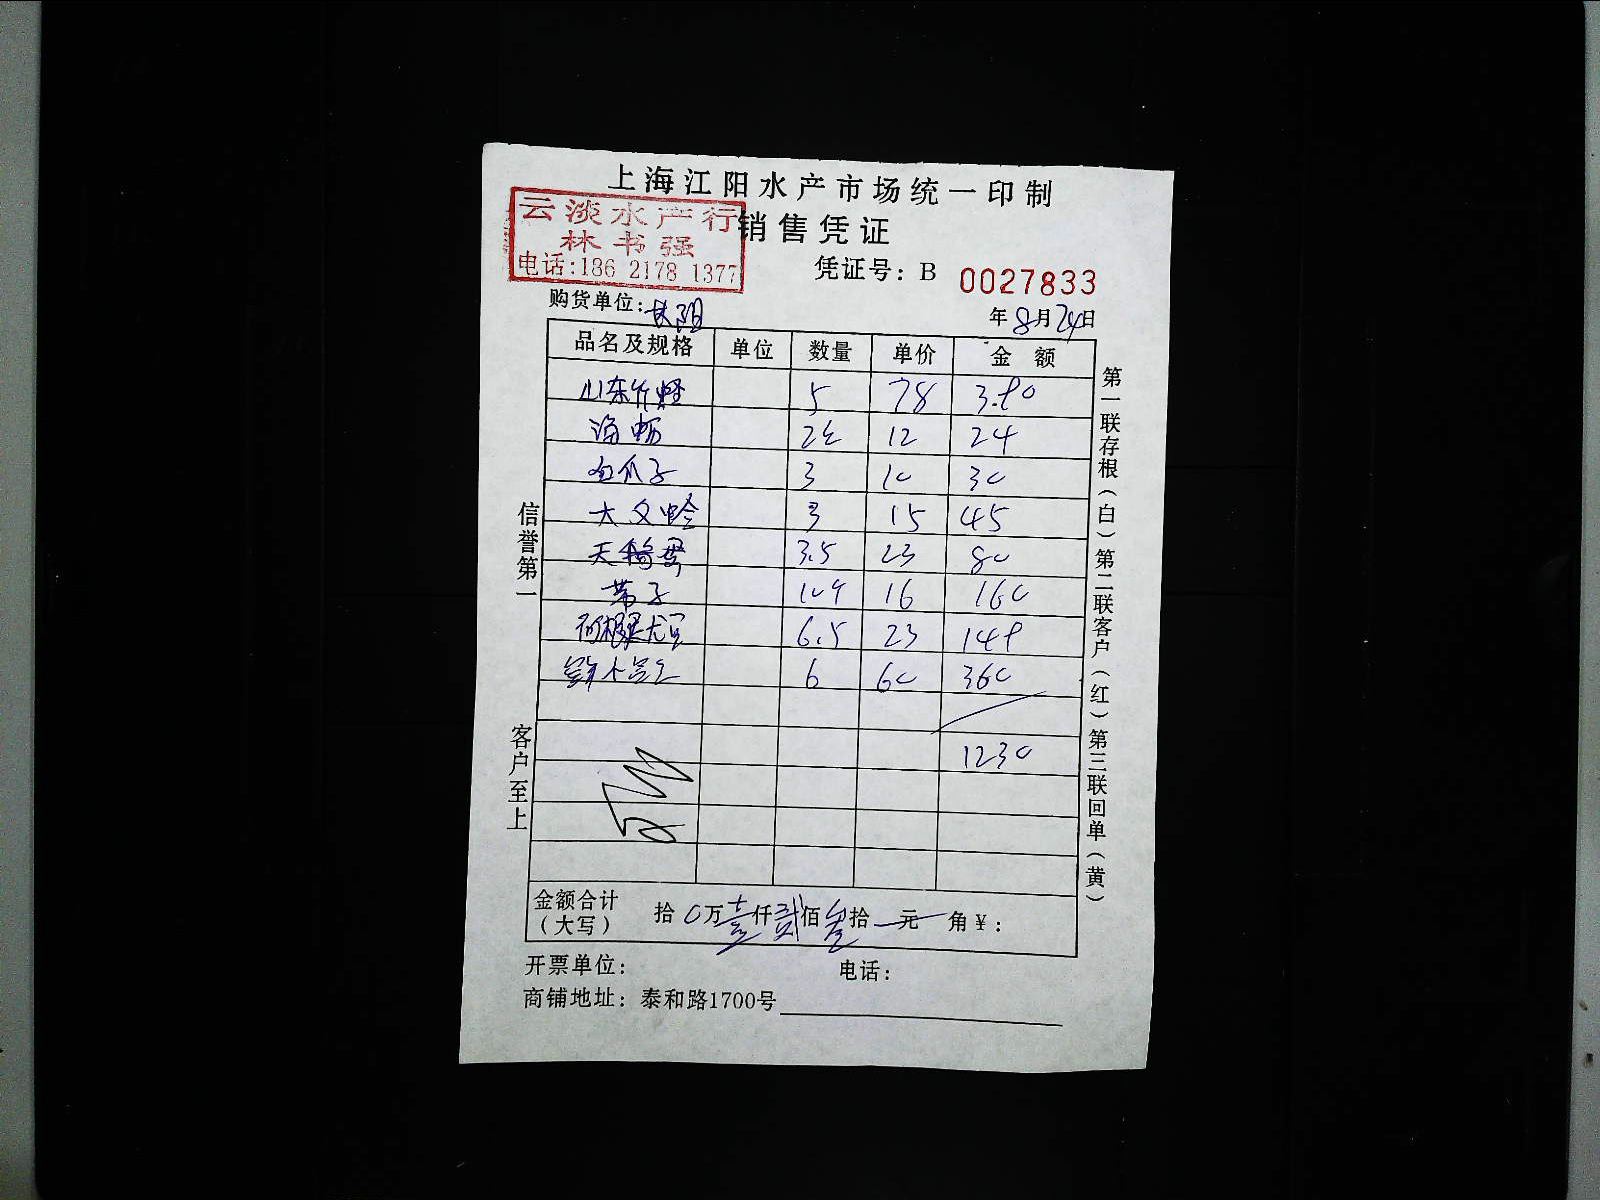 上海江阳水产市场统一印制
云淡水产行
林书强
电话:186 2178 1377
销售凭证
凭证号：B 0027833
购货单位：
年8月24日
品名及规格 单位 数量 单价 金额
山东竹蛏 5 78 390
海肠 2 12 24
白爪子 3 10 30
大文蛤 3 15 45
天鹅蛋 3.5 23 80
带子 10个 16 160
6.5 23 149
6 60 360
1230
金额合计（大写） 拾0万壹仟贰佰叁拾元角¥：
开票单位： 电话：
商铺地址：泰和路1700号
信誉第一 客户至上
第一联存根（白）第二联客户（红）第三联回单（黄）